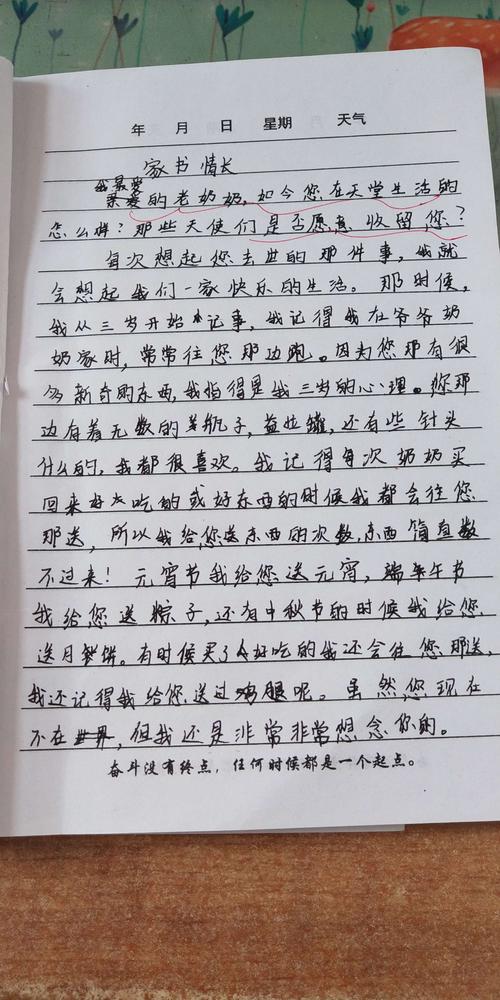 年 月 日 星期 天气
家书情长
我最爱
的老奶奶，如今您在天堂生活的
怎么样？那些天使们是否愿意收留您？
每次想起您去世的那件事，我就
会想起我们一家快乐的生活。那时候，
我从三岁开始记事，我记得我在爷爷奶
奶家时，常常往您那边跑。因为您那有很
多新奇的东西，我指得是我三岁的心理。您那
边有着无数的药瓶子，盐灶罐，还有些针头
什么的，我都很喜欢。我记得每次奶奶买
回来好点吃的或好东西的时候我都会往您
那送，所以我给您送东西的次数，东西简直数
不过来！元宵节我给您送元宵，端午节
我给您送粽子，还有中秋节的时候我给您
送月饼。有时候买了好吃的我还会往您那送，
我还记得我给您送过鸡腿呢。虽然您现在
不在世界，但我还是非常非常想念您的。
奋斗没有终点，任何时候都是一个起点。